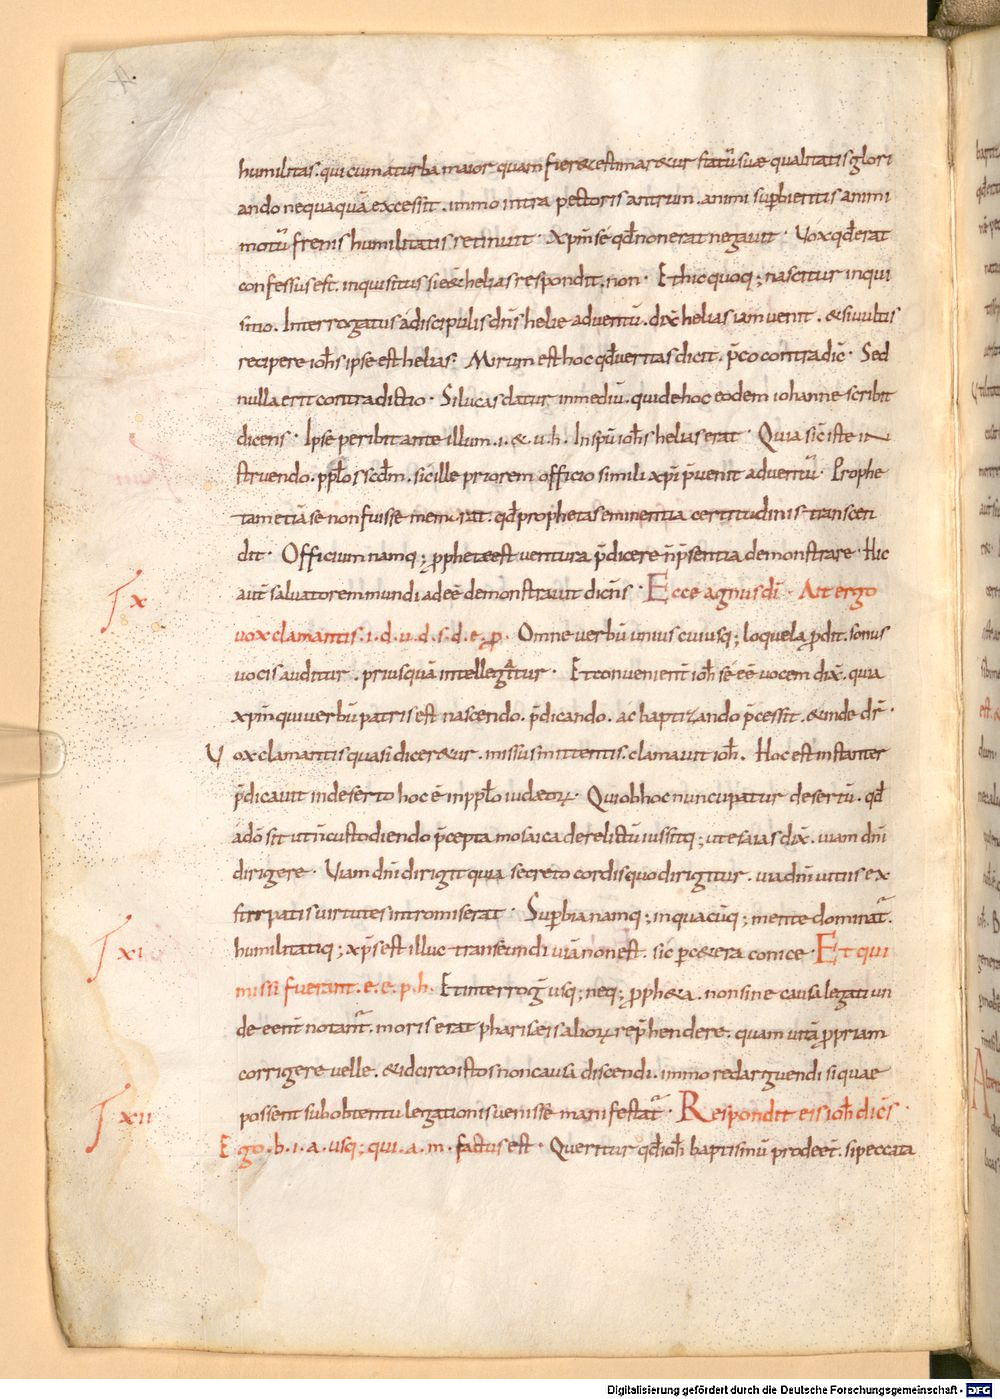 humilitas. qui cum a turba maior quam fier& estimar&ur statū suae qualitatis glori
ando nequaquā excessit. immo intra pectoris antrum. animi supbientis animi
motū frenis humilitatis retinuit. xpm se qd non erat negavit. Vox qd erat
confessus est. inquisitus si e& helias respondit. non. Et hic quoq; nascitur inqui
sitio. Interrogatus a discipulis dns helie adventū. dix helias iam venit. & si vultis
recipere iohs ipse est helias. Mirum est hoc qd veritas dicit. pco contradic. Sed
nulla erit contradictio. Si lucas datur in mediū. qui de hoc eodem iohanne scribit
dicens. Ipse peribit ante illum. i. &. u. h. In spū iohs helias erat. Quia sic iste in
struendo. pplos scdm. sic ille priorem officio simili xpi pvenit adventū. Prophe
tam etiā se non fuisse memorat. qd prophetas eminentia certitudinis transcen
dit. Officium namq; pphetae est ventura pdicere n psentia demonstrare. Hic
aut salvatorem mundi adeē demonstravit dicns. Ecce agnus di. Ait ergo
vox clamantis. i. d. u. d. s. d. e. p. Omne verbū unius cuiusq; loquela pdit. sonus
vocis auditur. priusquā intellegatur. Et convenient ioh se eē vocem dix. quia
xpm qui verbū patris est nascendo. pdicando. ac baptizando pcessit. & inde dr.
Vox clamantis quasi dicer&ur. missus mittentis. clamavit ioh. Hoc est instanter
pdicavit in deserto hoc ē in pplo iudaeor. Qui ob hoc nuncupatur desertū. qd
a dō sit ut n custodiendo pcepta mosaica derelictū iussitq; ut esaias dix. viam dni
dirigere. Viam dni dirigit quia secreto cordis quo dirigitur. via dni vitiis ex
stirpatis virtutes intromiserat. Supbia namq; in quacūq; mente dominat.
humilitatiq; xps est illuc transeundi viā non est. sic pc& era conice. Et qui
missi fuerant. e. e. p. h. Et interrog usq; neq; pph&a. non sine causa legati un
de eent notant. moris erat pharisaeis alior rephendere. quam vitā ppriam
corrigere velle. & idcirco istos non causa discendi. immo redarguendi si quae
possent sub obtentu legationis venisse manifestat. Respondit eis ioh dicns.
Ego. b. i. a. usq; qui. a. m. factus est. Queritur qd ioh baptismū prodeet. si peccata
x
xi
xii
4
Digitalisierung gefördert durch die Deutsche Forschungsgemeinschaft - DFG